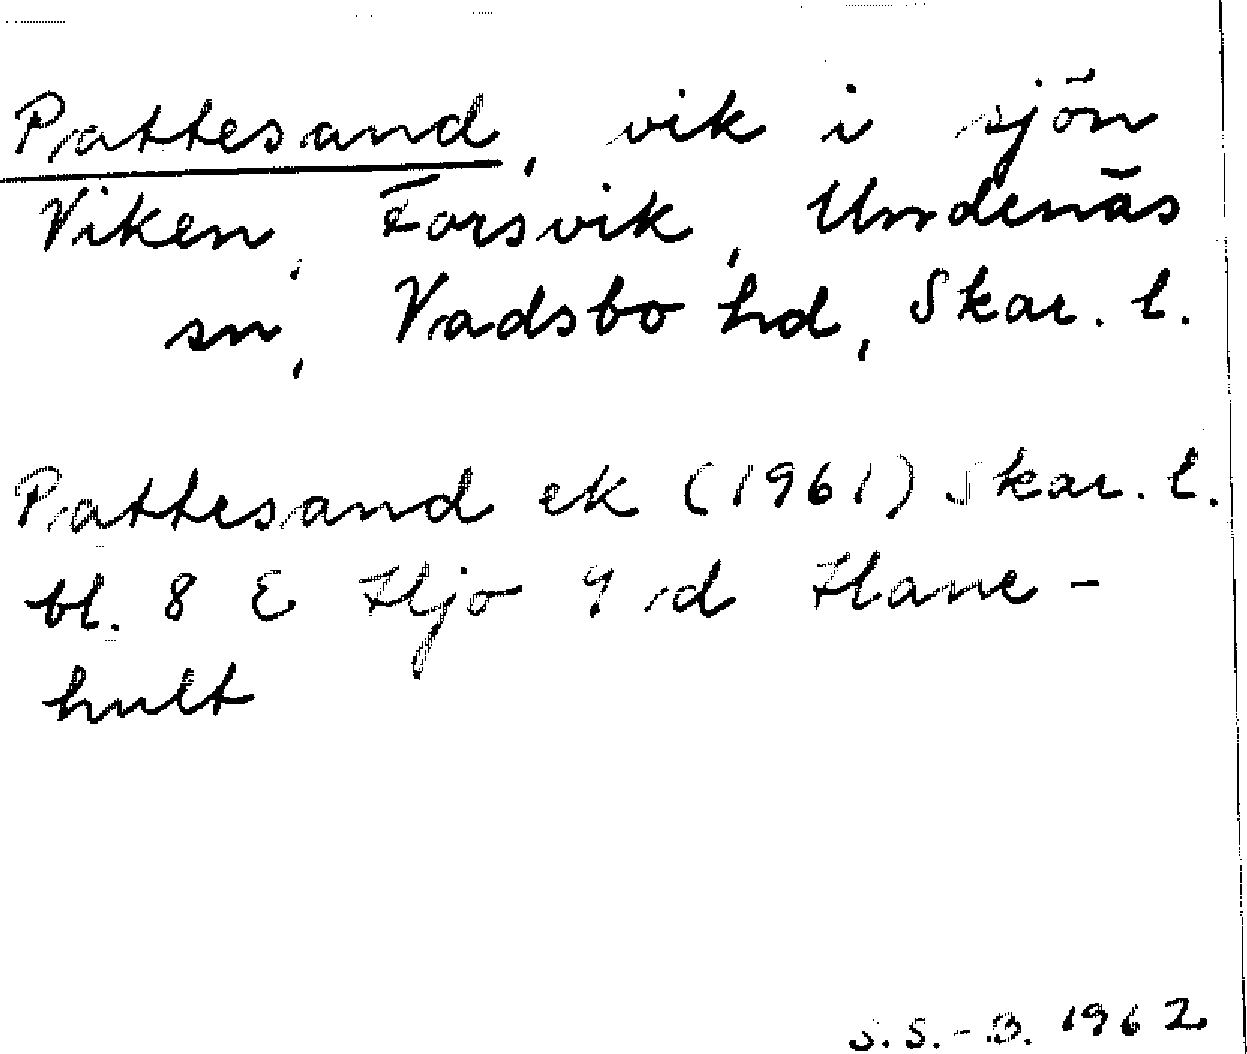 Pattesand, vik i sjön
Viken, Forsvik, Undenäs
sn, Vadsbo hd, Skar. l.
Pattesand ek (1961) Skar. l.
bl. 8 E Hjo 9 d Hane-
hult
S. S.-B. 1962